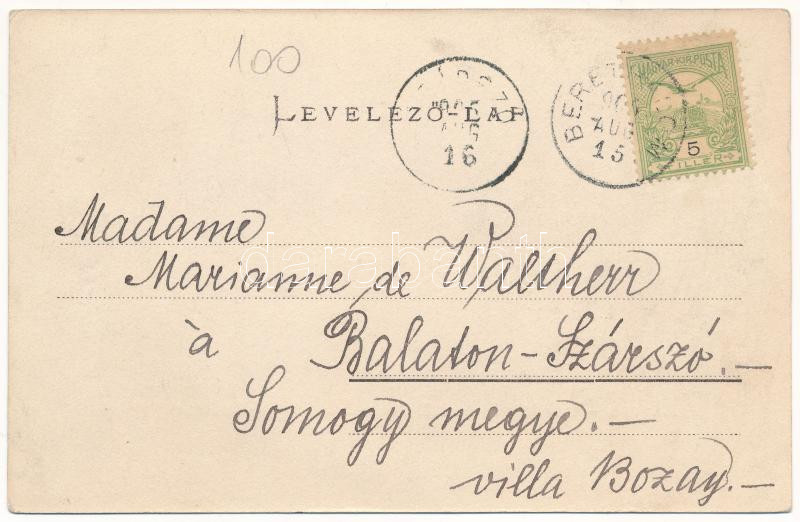 100
LEVELEZŐ-LAP
905
AUG
16
AUG
15
MAGYAR·KIR·POSTA
5
FILLÉR
Madame
Marianne de Waltherr
à
Balaton-Szárszó.—
Somogy megye.—
villa Bozay.—
darabanth